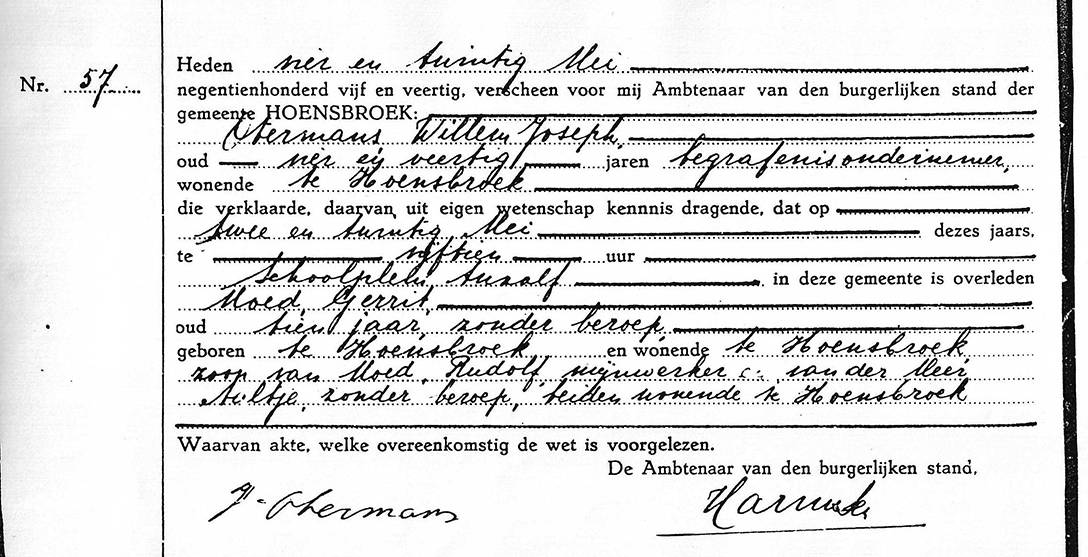 Nr. 57
Heden vier en twintig Mei
negentienhonderd vijf en veertig, verscheen voor mij Ambtenaar van den burgerlijken stand der
gemeente HOENSBROEK:
Obermans, Willem Joseph,
oud vier en veertig jaren begrafenisondernemer,
wonende te Hoensbroek
die verklaarde, daarvan uit eigen wetenschap kennnis dragende, dat op
twee en twintig Mei dezes jaars,
te vijftien uur
Schoolplein twaalf in deze gemeente is overleden
Moed, Gerrit,
oud tien jaar, zonder beroep,
geboren te Hoensbroek en wonende te Hoensbroek,
zoon van Moed, Rudolf, mijnwerker van der Meer,
zonder beroep, beiden wonende te Hoensbroek
Waarvan akte, welke overeenkomstig de wet is voorgelezen.
De Ambtenaar van den burgerlijken stand,
Obermans